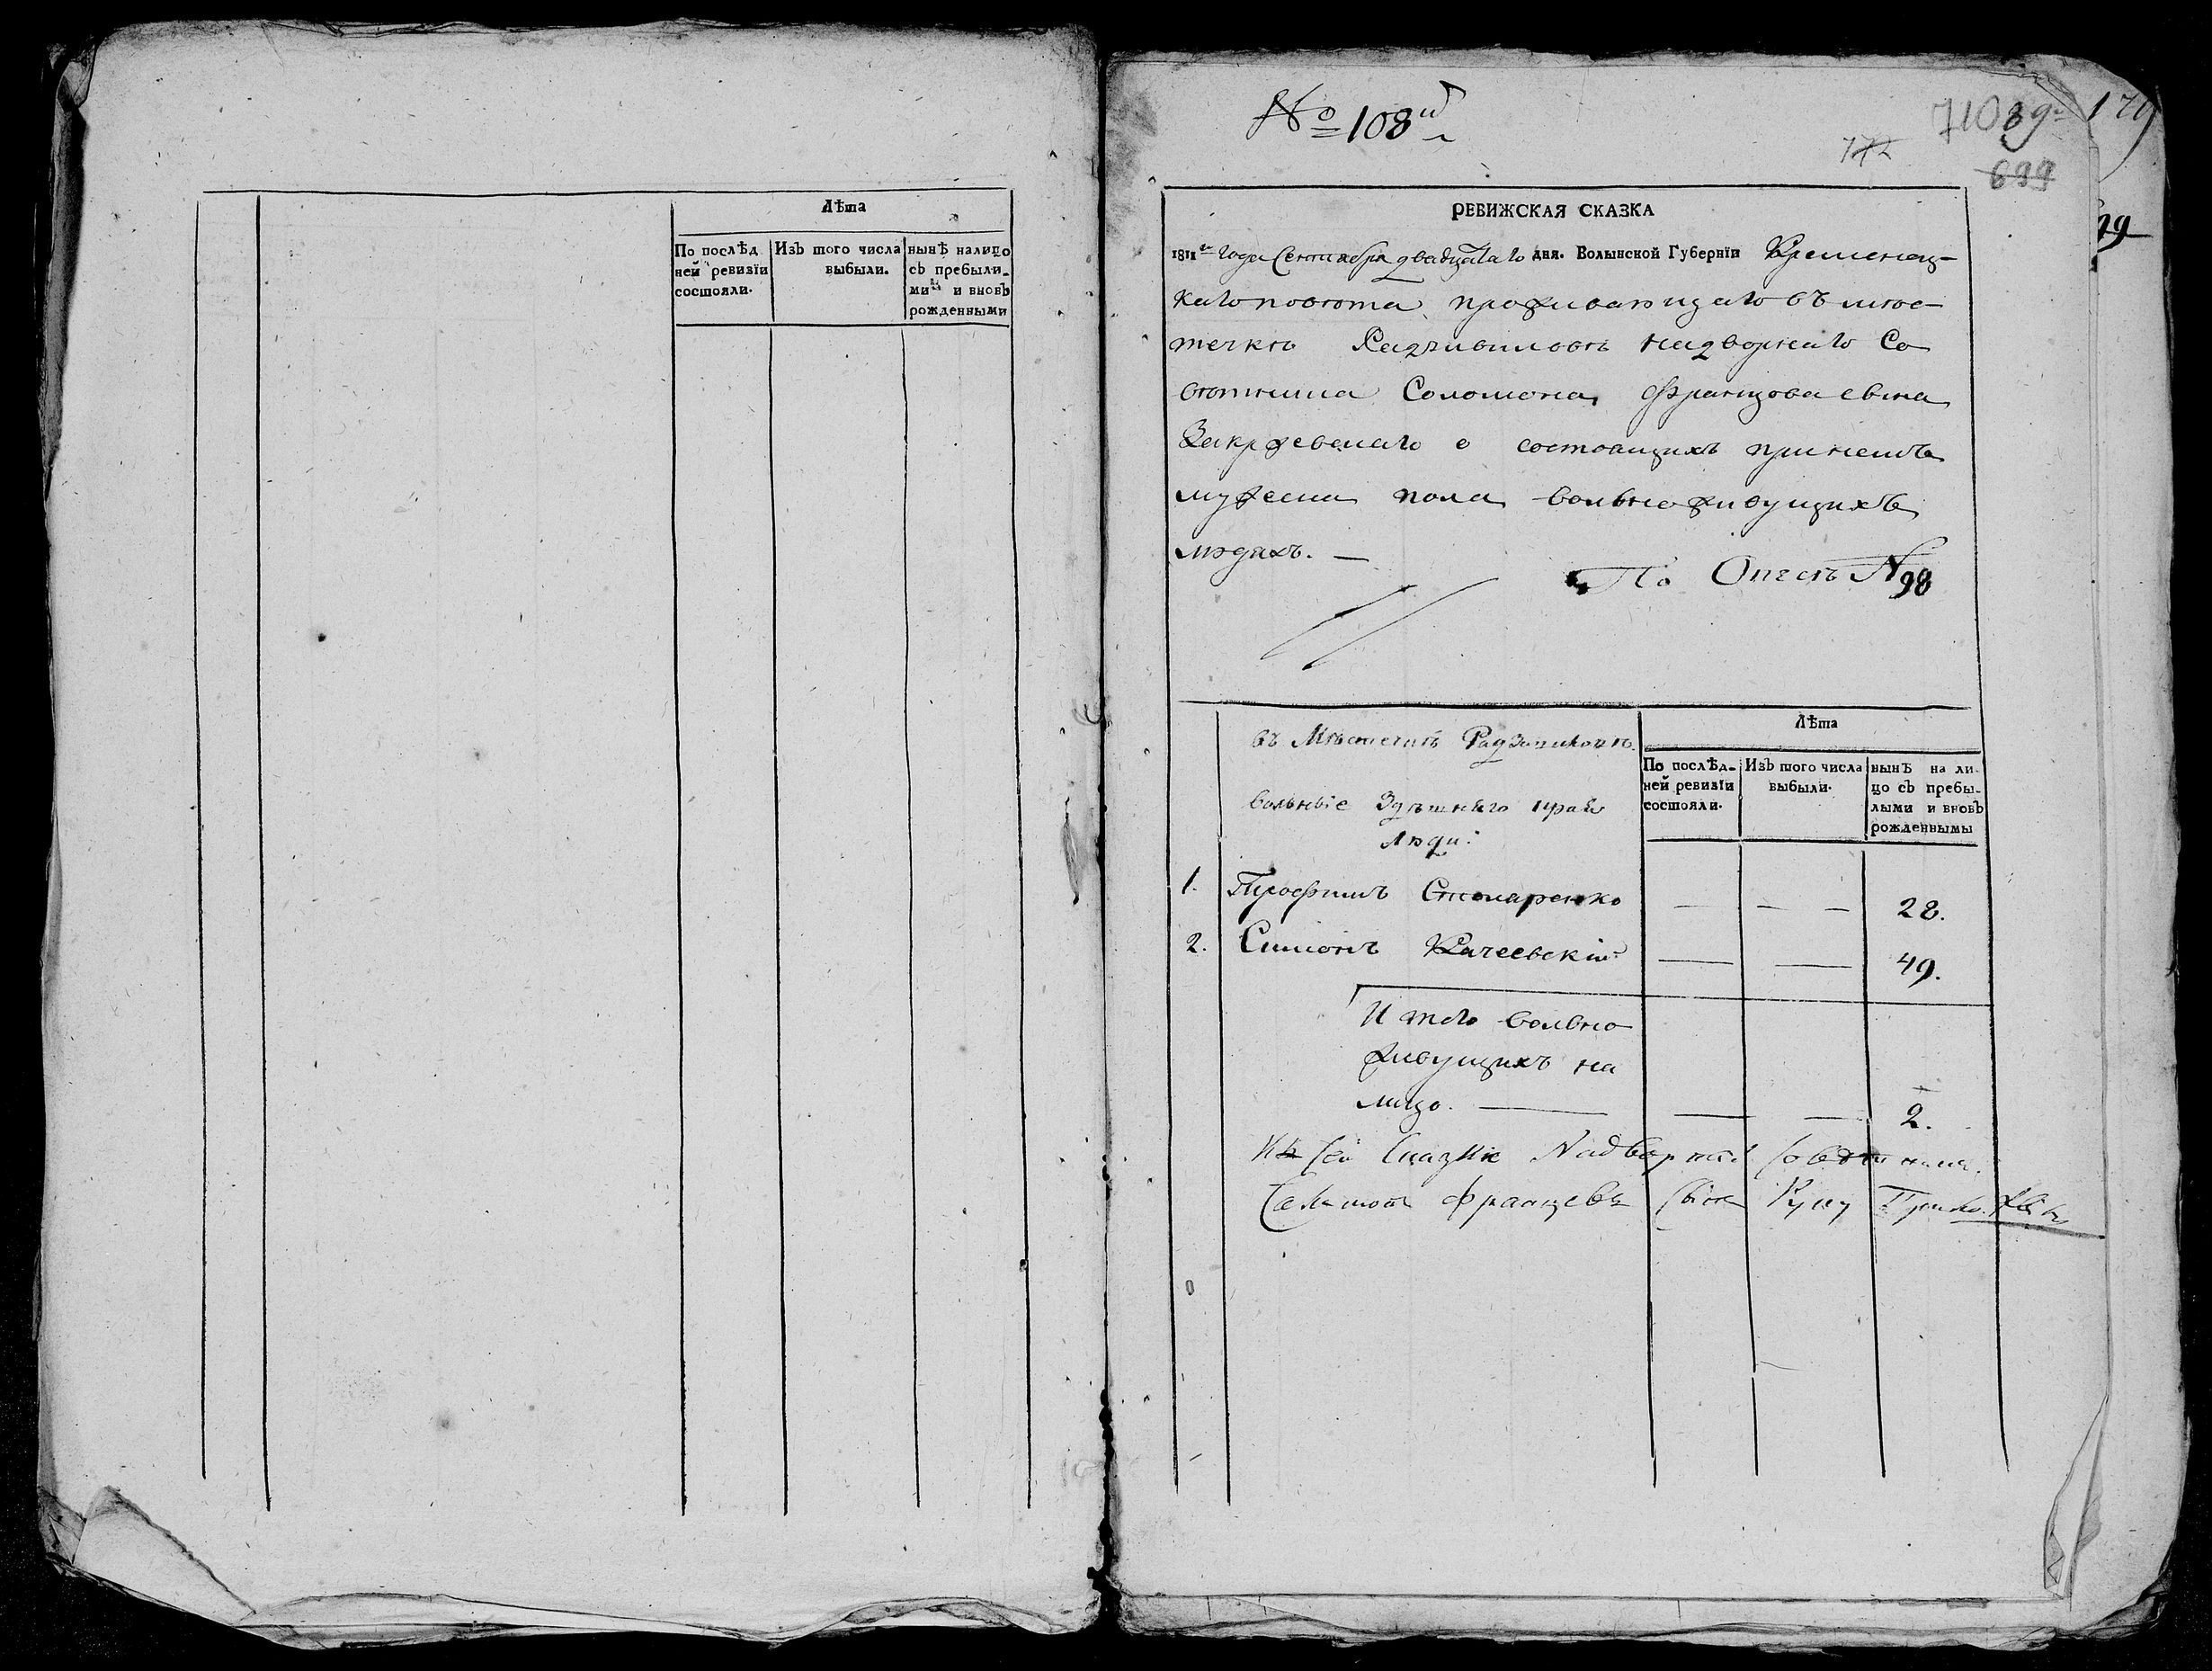 Лѣта
По послѣд
ней ревизїи
состояли.
Изъ того числа
выбыли.
нынѣ налицо
съ прeбыли-
ми и вновь
рожденными
№ 108й
172
710
89
179
699
99
РЕВИЖСКАЯ СКАЗКА
1811го года Сентября двадцатаго дня. Волынской Губернїи Кременец-
каго повѣта, проживающаго въ мѣс-
течкѣ Радзивиловѣ надворнаго Со
вѣтника Соломона Францова сына
Закржевскаго о состоящихъ при немъ
мужеска пола вольноживущихъ
людяхъ. —
По Описѣ № 98
въ Мѣстечкѣ Радзивиловѣ
вольные здѣшнего края
люди:
Лѣта
По послѣд-
ней ревизїи
состояли.
Изъ того числа
выбыли.
нынѣ на ли-
цо съ пребы-
лыми и вновь
рожденнымы
1. Трофимъ Столяренко — — — 28.
2. Симонъ Качеевскій — — 49.
Итого вольно
живущихъ на
лицо. — — — 2.
Къ сей Сказке Надворной Советникъ
Соломонъ Францевъ Сынъ Руку